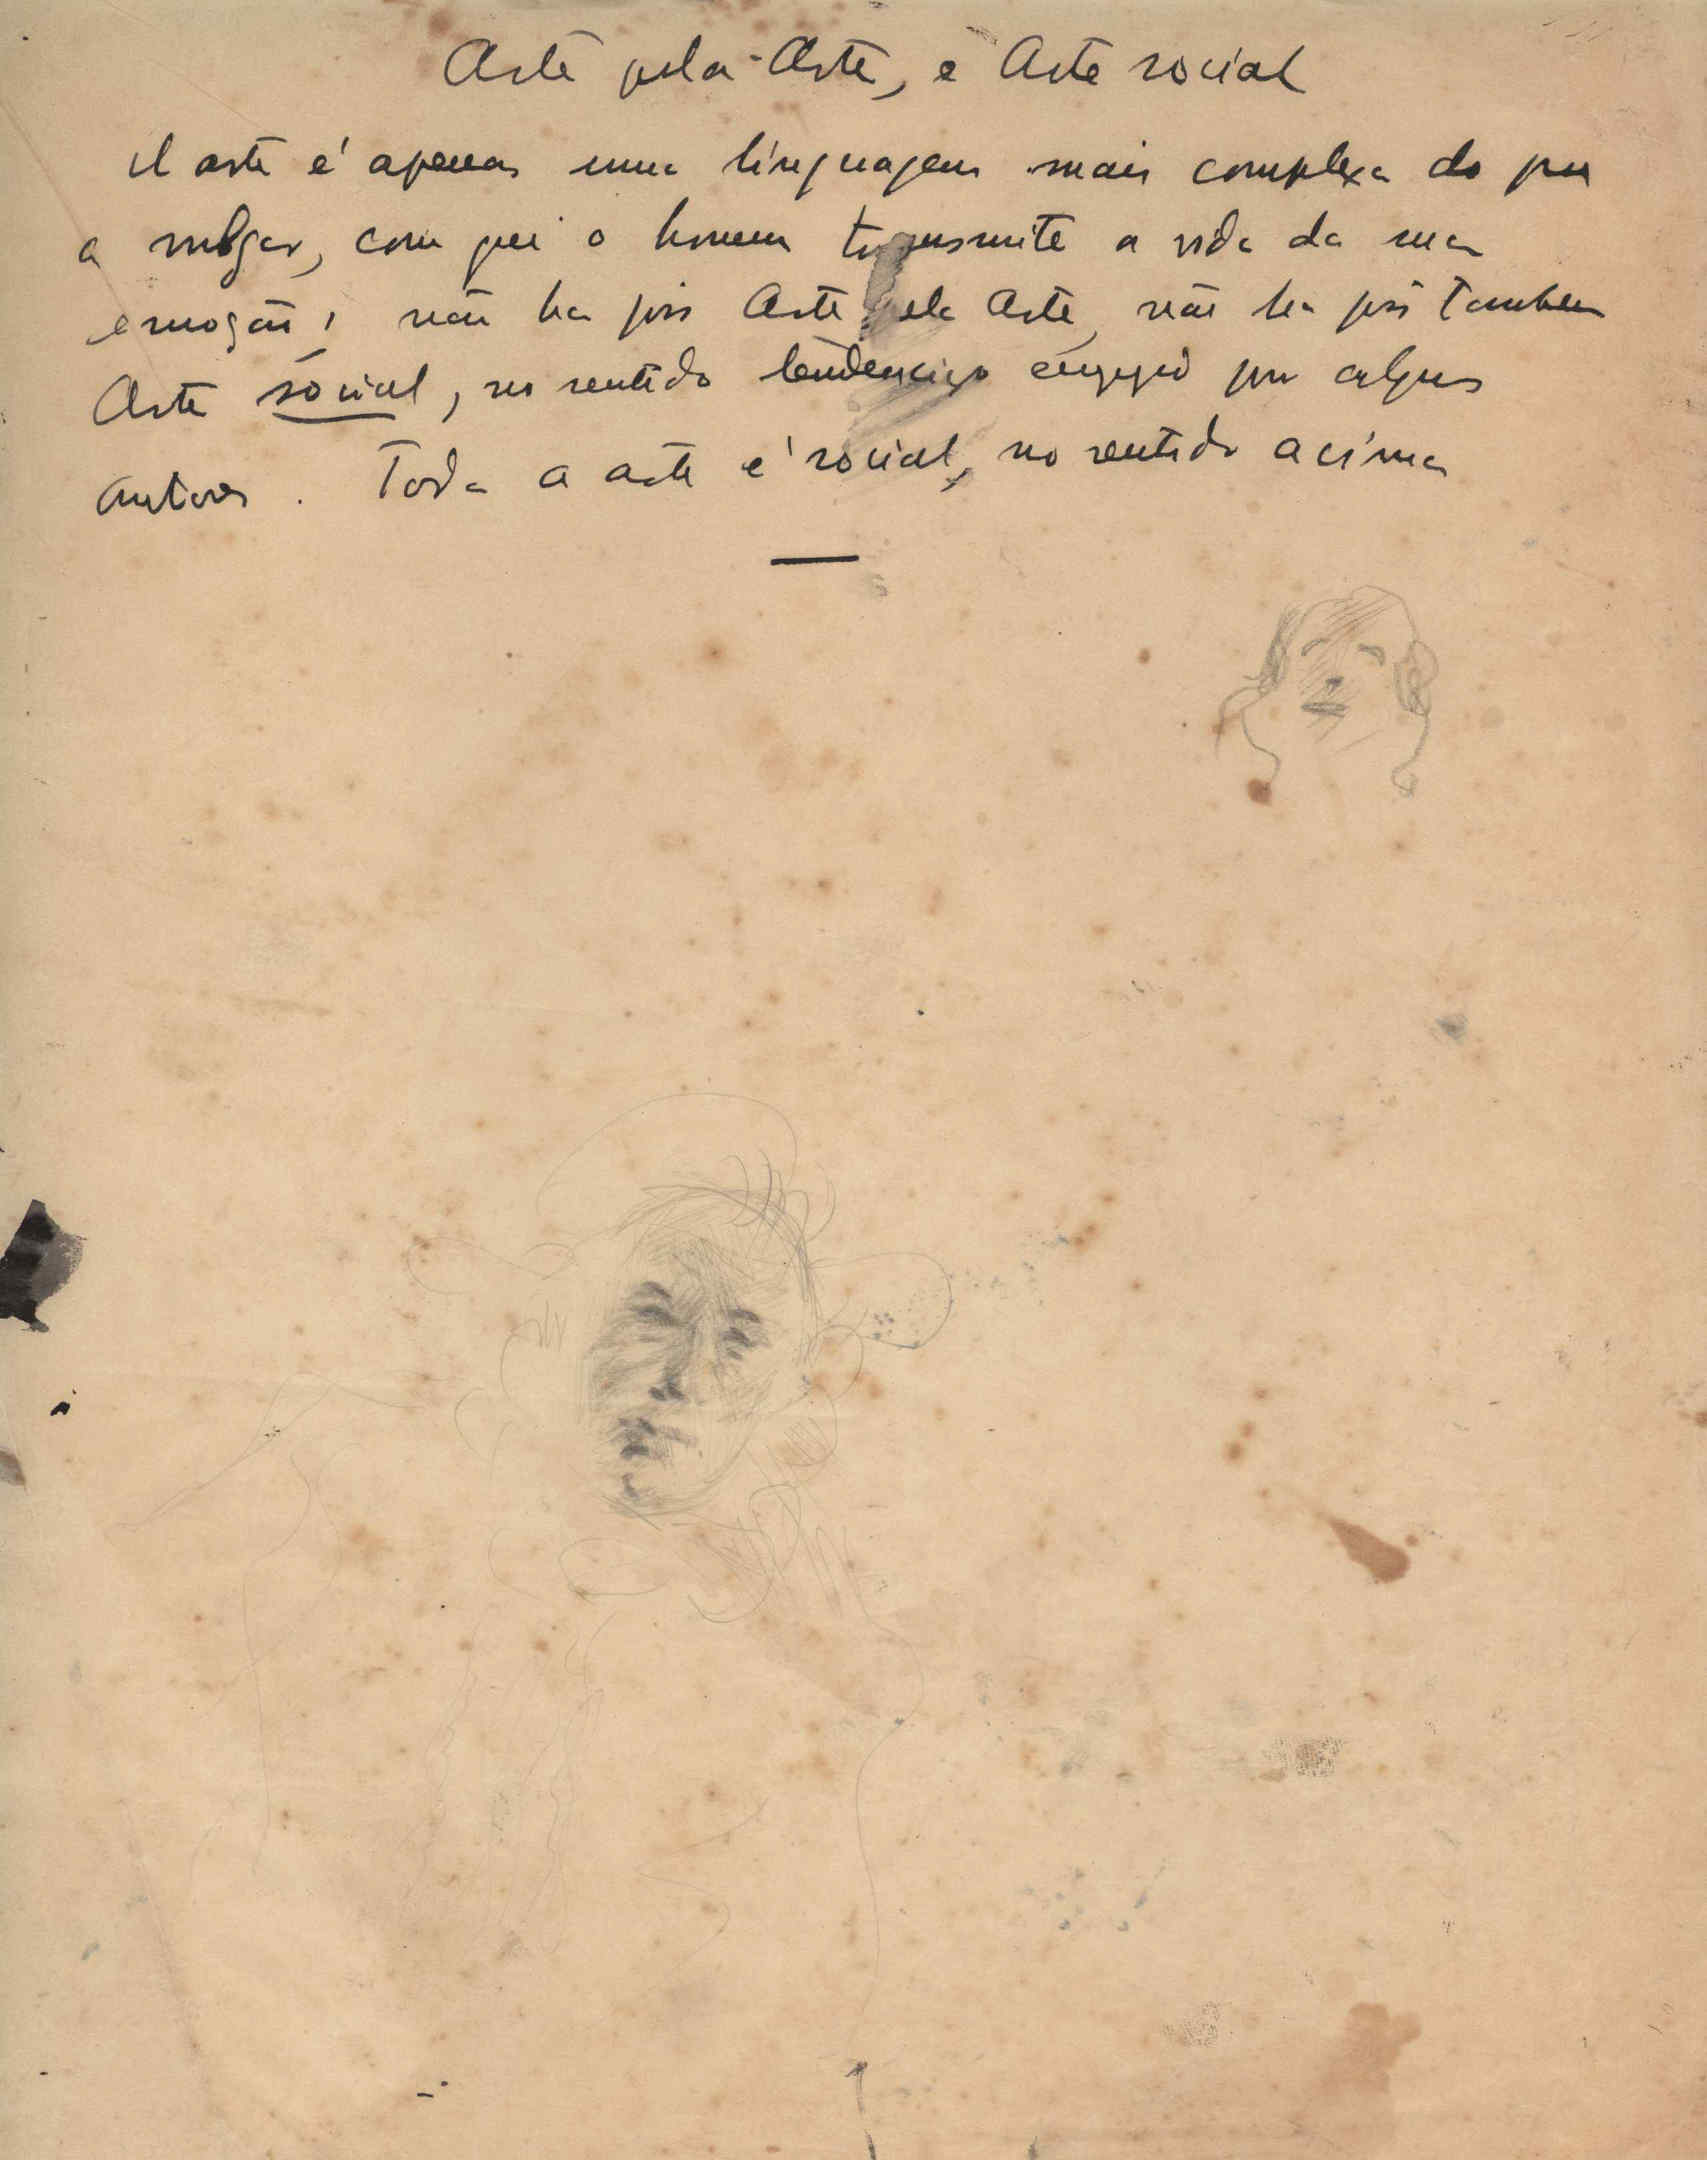 Arte pela Arte, e Arte social
A arte é apenas uma linguagem mais complexa do que
a vulgar, com que o homem transmite a vida da sua
emoção; não ha pois Arte pela Arte, não ha pois tambem
Arte social, no sentido tendencioso por alguns
autores. Toda a arte é social, no sentido acima